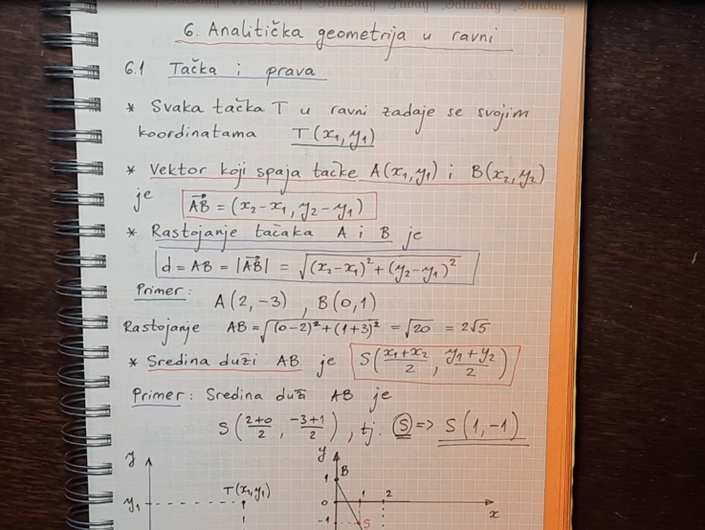 6. Analitička geometrija u ravni
6.1 Tačka i prava
* Svaka tačka T u ravni zadaje se svojim
koordinatama T(x₁, y₁)
* Vektor koji spaja tačke A(x₁, y₁) i B(x₂, y₂)
je AB⃗ = (x₂ − x₁, y₂ − y₁)
* Rastojanje tačaka A i B je
d = AB = |AB⃗| = √((x₂−x₁)² + (y₂−y₁)²)
Primer: A(2, −3) , B(0, 1)
Rastojanje AB = √((0−2)² + (1+3)²) = √20 = 2√5
* Sredina duži AB je S((x₁+x₂)/2, (y₁+y₂)/2)
Primer: Sredina duži AB je
S((2+0)/2, (−3+1)/2) , tj. S => S(1, −1)
y
y₁
T(x₁, y₁)
y
1 B
0 1 2
x
−1 S